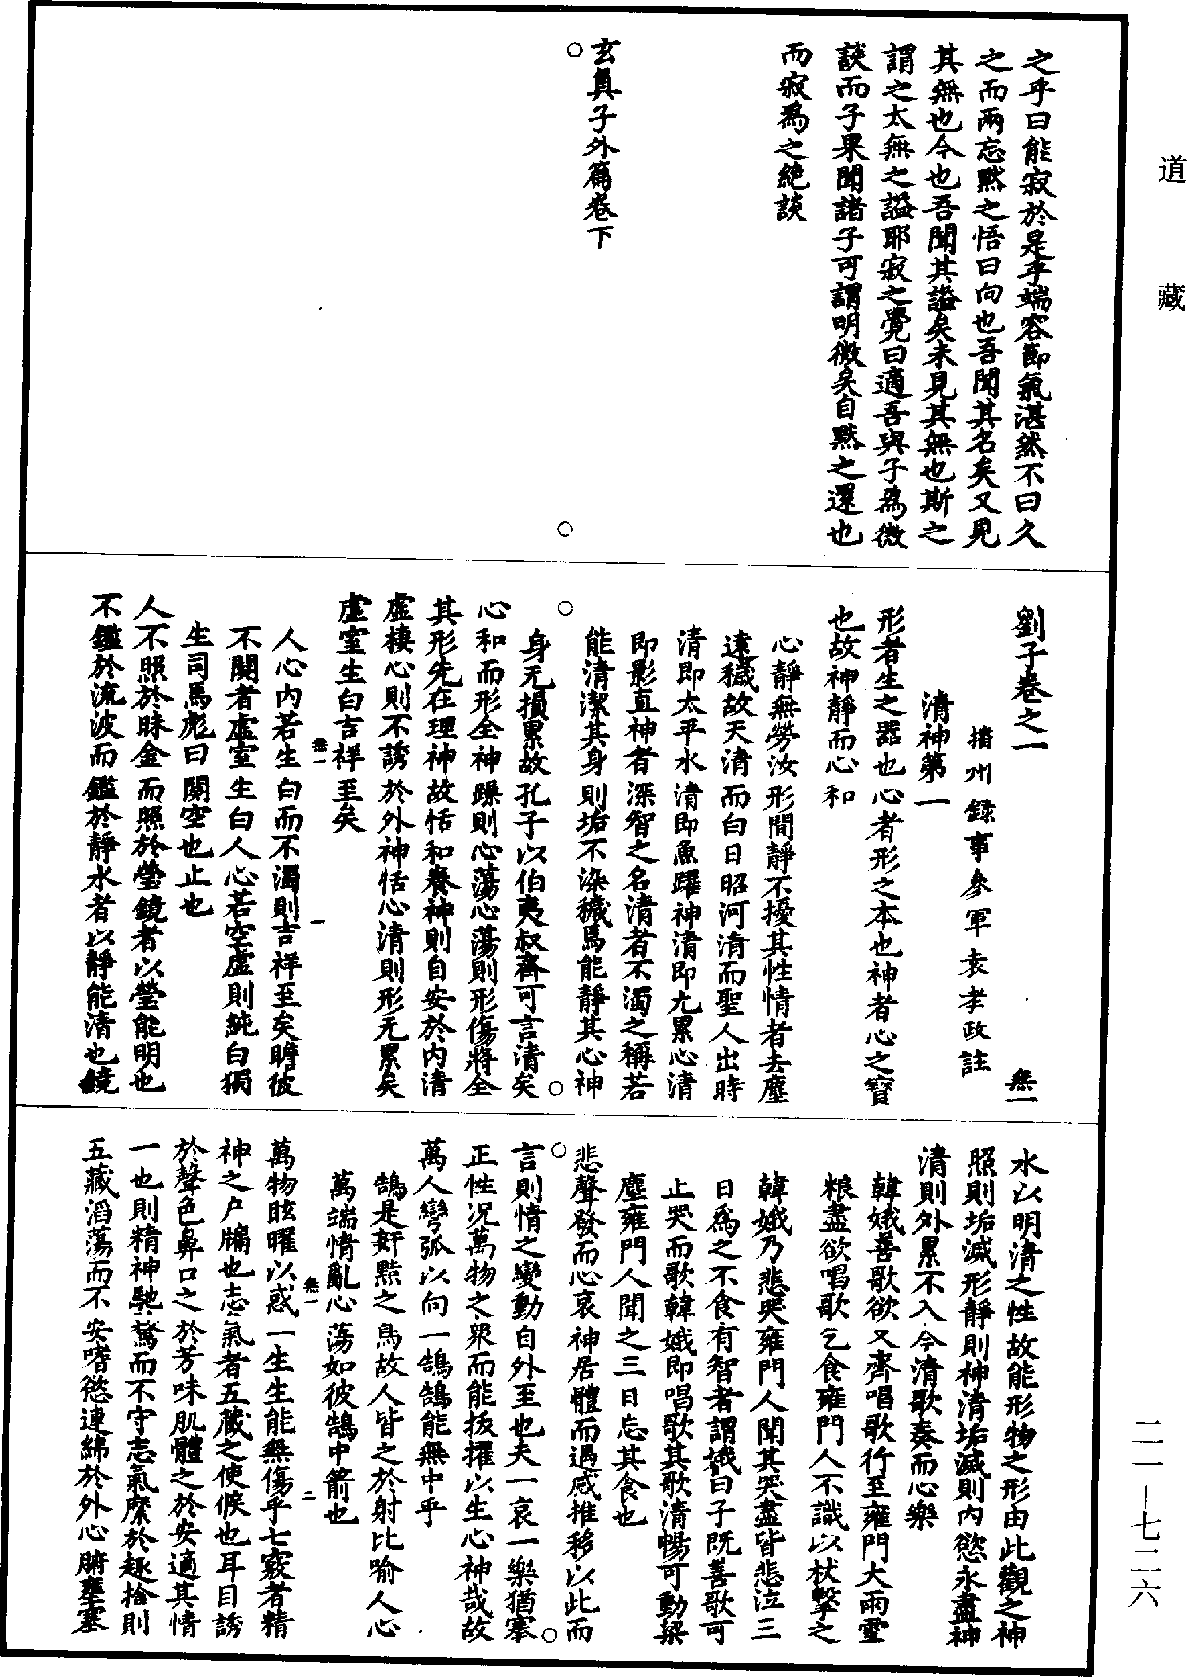 道藏
之乎曰能寂於是乎端容節氣湛然不曰久
之而兩忘默之悟曰向也吾聞其名矣又見
其無也今也吾聞其謚矣未見其無也斯之
謂之太無之謚耶寂之覺曰適吾與子爲微
談而子果聞諸子可謂明微矣自默之還也
而寂爲之絶談
玄真子外篇卷下
劉子卷之一
無一
播州錄事參軍袁孝政註
清神第一
形者生之器也心者形之本也神者心之寶
也故神靜而心和
心靜無勞汝形間靜不擾其性情者去塵
遠穢故天清而白日昭河清而聖人出時
清即太平水清即魚躍神清即尢累心清
即影直神者深智之名清者不濁之稱若
能清潔其身則垢不染穢爲能靜其心神
身无損累故孔子以伯夷叔齊可言清矣
心和而形全神躁則心蕩心蕩則形傷將全
其形先在理神故恬和養神則自安於內清
虛棲心則不誘於外神恬心清則形无累矣
虛室生白吉祥至矣
無一
一
人心內若生白而不濁則吉祥至矣瞻彼
不闋者虛室生白人心若空虛則純白獨
生司馬彪曰闋空也止也
人不照於昧金而照於瑩鏡者以瑩能明也
不鑑於流波而鑑於靜水者以靜能清也鏡
水以明清之性故能形物之形由此觀之神
照則垢滅形靜則神清垢滅則內慾永盡神
清則外累不入今清歌奏而心樂
韓娥善歌欲又齊唱歌行至雍門大雨雪
粮盡欲唱歌乞食雍門人不識以杖擊之
韓娥乃悲哭雍門人聞其哭盡皆悲泣三
日爲之不食有智者謂娥曰子既善歌可
止哭而歌韓娥即唱歌其歌清暢可動梁
塵雍門人聞之三日忘其食也
悲聲發而心哀神居體而遇感推移以此而
言則情之變動自外至也夫一哀一樂猶搴
正性况萬物之衆而能拔擢以生心神哉故
萬人彎弧以向一鵠鵠能無中乎
鵠是奸黠之鳥故人皆之於射比喻人心
萬端情亂心蕩如彼鵠中箭也
無一
二
萬物眩曜以惑一生生能無傷乎七竅者精
神之户牖也志氣者五藏之使候也耳目誘
於聲色鼻口之於芳味肌體之於安適其情
一也則精神馳騖而不守志氣縻於趣捨則
五藏滔蕩而不安嗜慾連綿於外心腑壅塞
二一—七二六